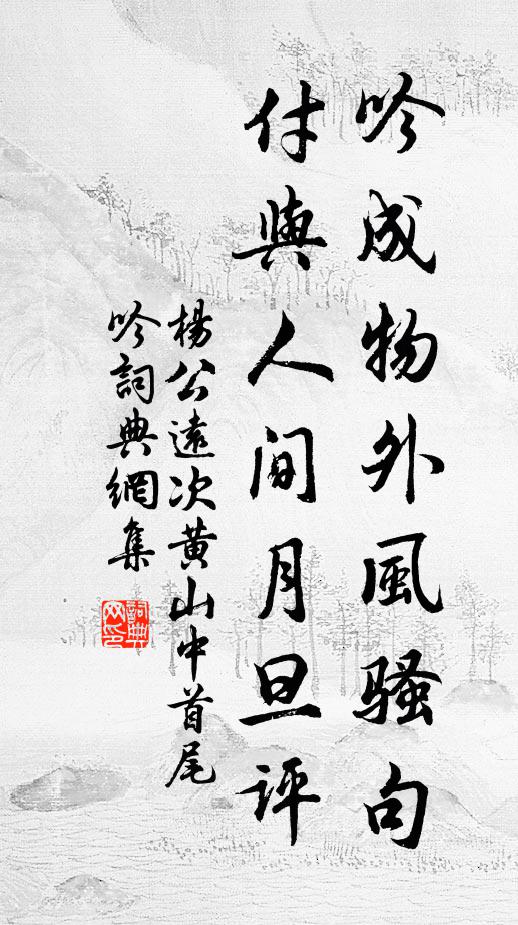 吟成物外風騷句
付與人間月旦評
楊公遠次黄山中首尾
吟詞典網集
詞典
网印